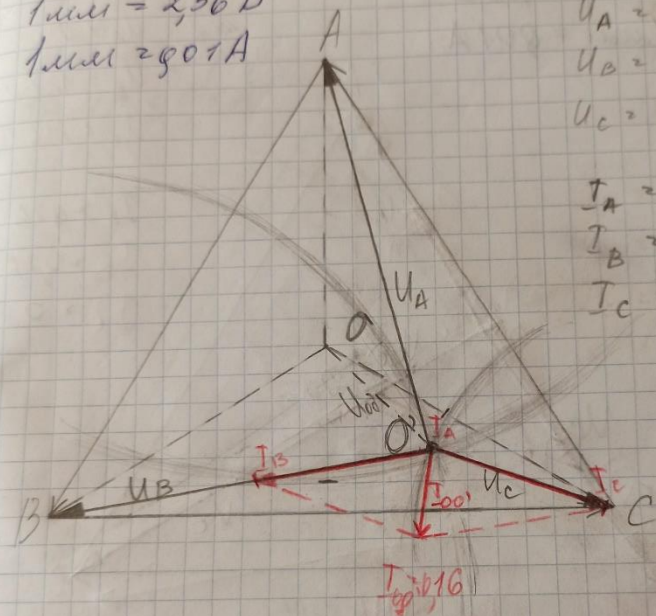 1мм = 2,56 В
1мм = 0,01 А
U_A =
U_B =
U_C =
I_A =
I_B =
I_C
A
U_A
O
U_OO'
O'
I_A
I_B
I_C
U_B
U_C
I_OO'
B
C